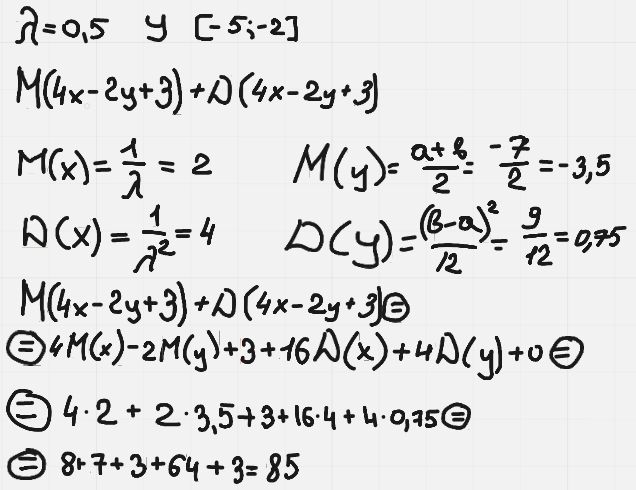 λ=0,5 y [-5;-2]
M(4x-2y+3)+D(4x-2y+3)
M(x)=1/λ=2 M(y)=(a+b)/2=-7/2=-3,5
D(x)=1/λ²=4 D(y)=(b-a)²/12=9/12=0,75
M(4x-2y+3)+D(4x-2y+3)⊜
⊜4M(x)-2M(y)+3+16D(x)+4D(y)+0⊜
⊜4·2+2·3,5+3+16·4+4·0,75⊜
⊜8+7+3+64+3=85